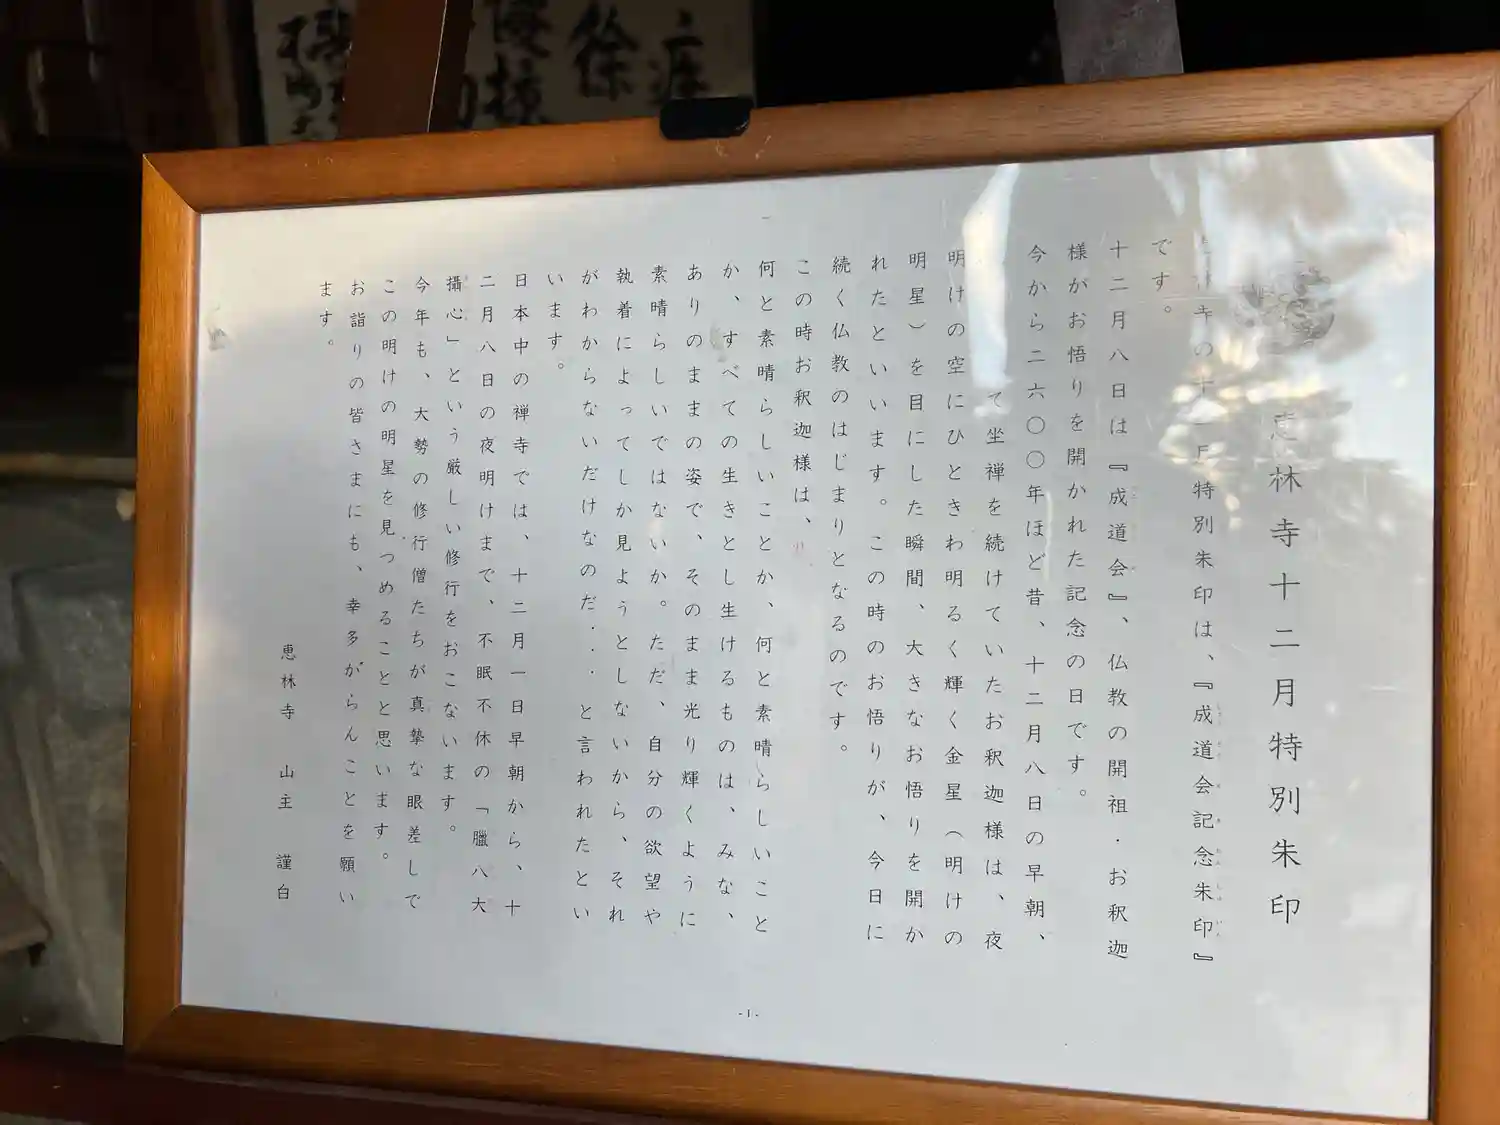 恵林寺十二月特別朱印
寺の十二月特別朱印は、『成道会記念朱印』
です。
十二月八日は『成道会』、仏教の開祖・お釈迦
様がお悟りを開かれた記念の日です。
今から二六〇〇年ほど昔、十二月八日の早朝、
て坐禅を続けていたお釈迦様は、夜
明けの空にひときわ明るく輝く金星（明けの
明星）を目にした瞬間、大きなお悟りを開か
れたといいます。この時のお悟りが、今日に
続く仏教のはじまりとなるのです。
この時お釈迦様は、
何と素晴らしいことか、何と素晴らしいこと
か、すべての生きとし生けるものは、みな、
ありのままの姿で、そのまま光り輝くように
素晴らしいではないか。ただ、自分の欲望や
執着によってしか見ようとしないから、それ
がわからないだけなのだ・・・と言われたとい
います。
日本中の禅寺では、十二月一日早朝から、十
二月八日の夜明けまで、不眠不休の「臘八大
攝心」という厳しい修行をおこないます。
今年も、大勢の修行僧たちが真摯な眼差しで
この明けの明星を見つめることと思います。
お詣りの皆さまにも、幸多がらんことを願い
ます。
恵林寺 山主 謹白
- 1 -